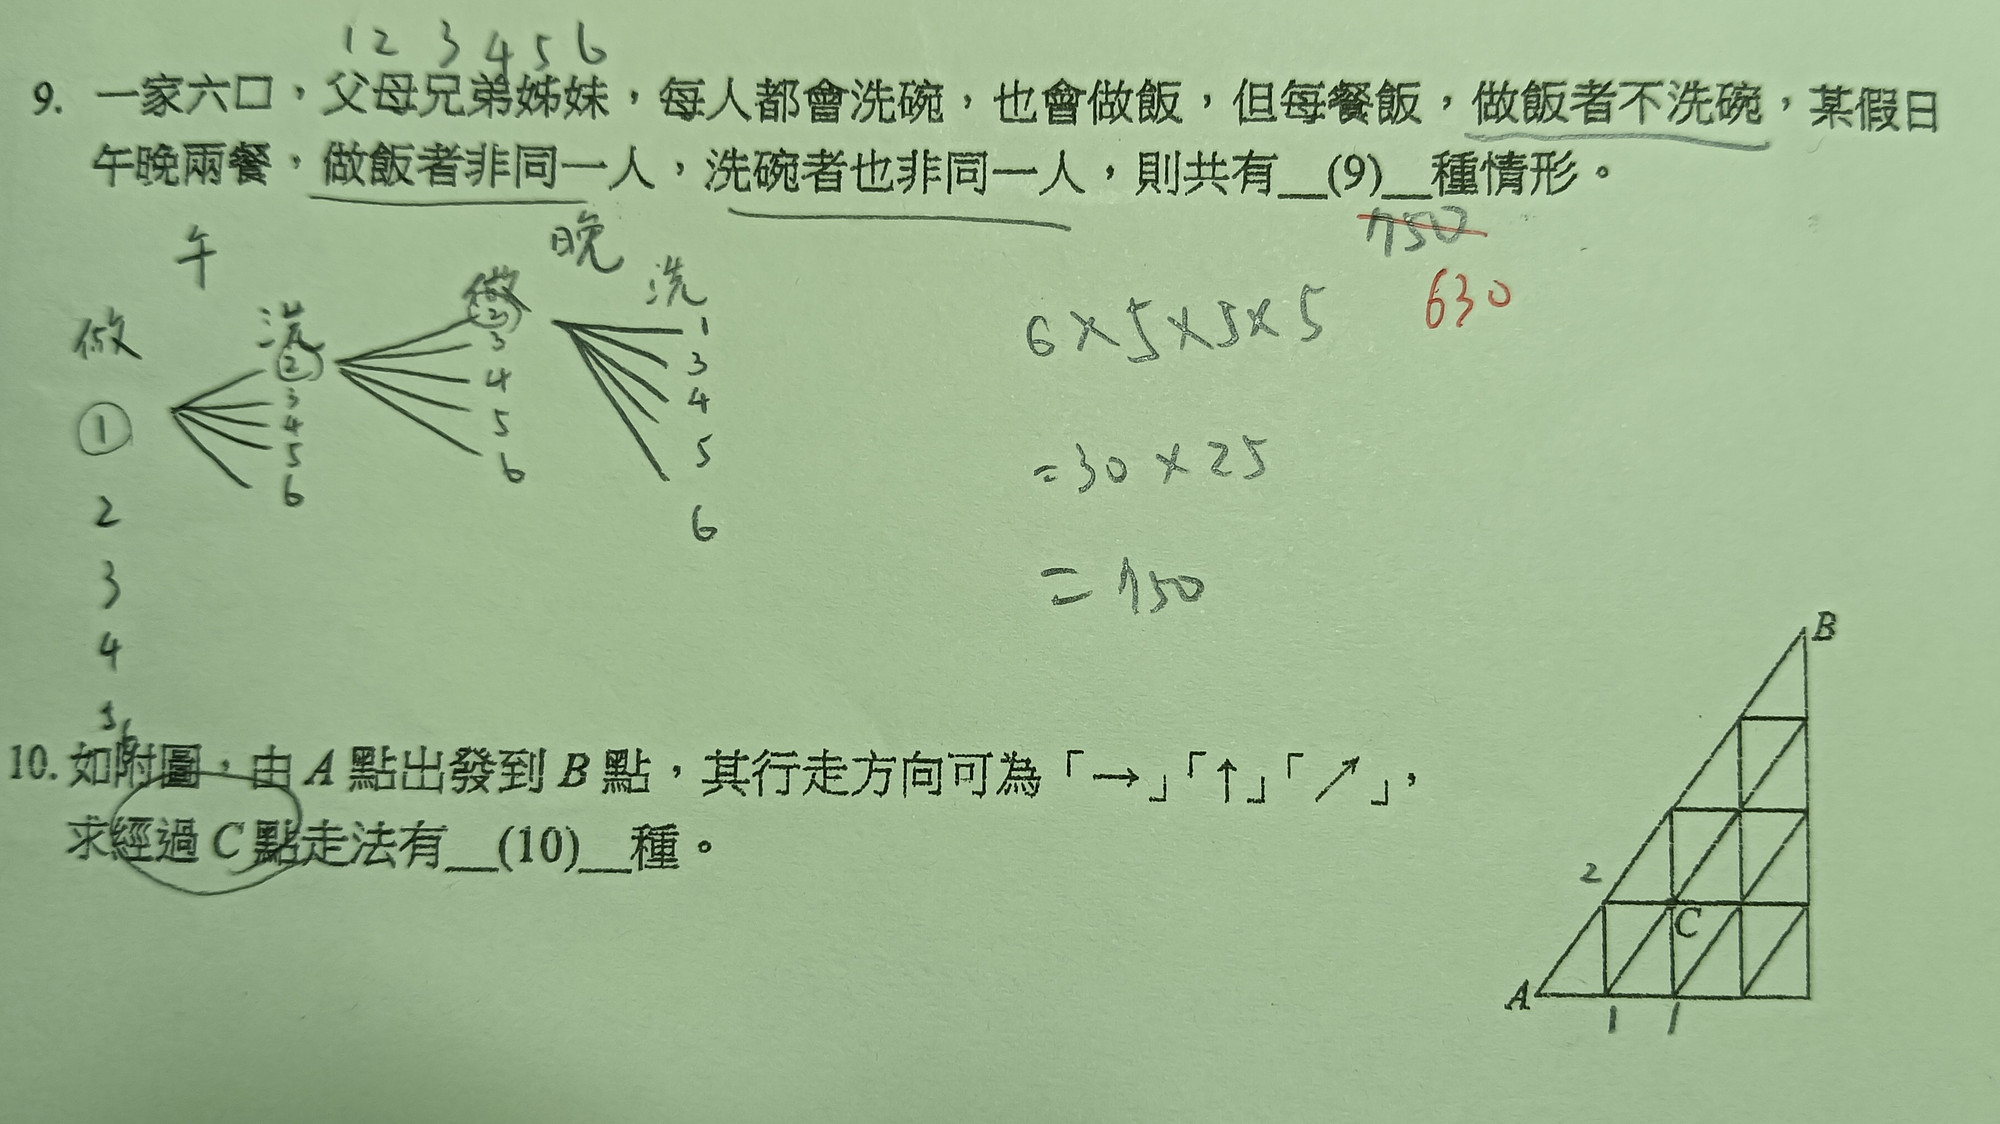 1 2 3 4 5 6
9. 一家六口，父母兄弟姊妹，每人都會洗碗，也會做飯，但每餐飯，做飯者不洗碗，某假日
午晚兩餐，做飯者非同一人，洗碗者也非同一人，則共有__(9)__種情形。
750
630
午 晚
做 洗 做 洗
① ② ② 1
3 3 3
4 4 4
5 5 5
6 6 6
2
3
4
5
6
6×5×5×5
=30×25
=750
10. 如附圖，由 A 點出發到 B 點，其行走方向可為「→」「↑」「↗」，
求經過 C 點走法有__(10)__種。
B
2
C
A
1 1